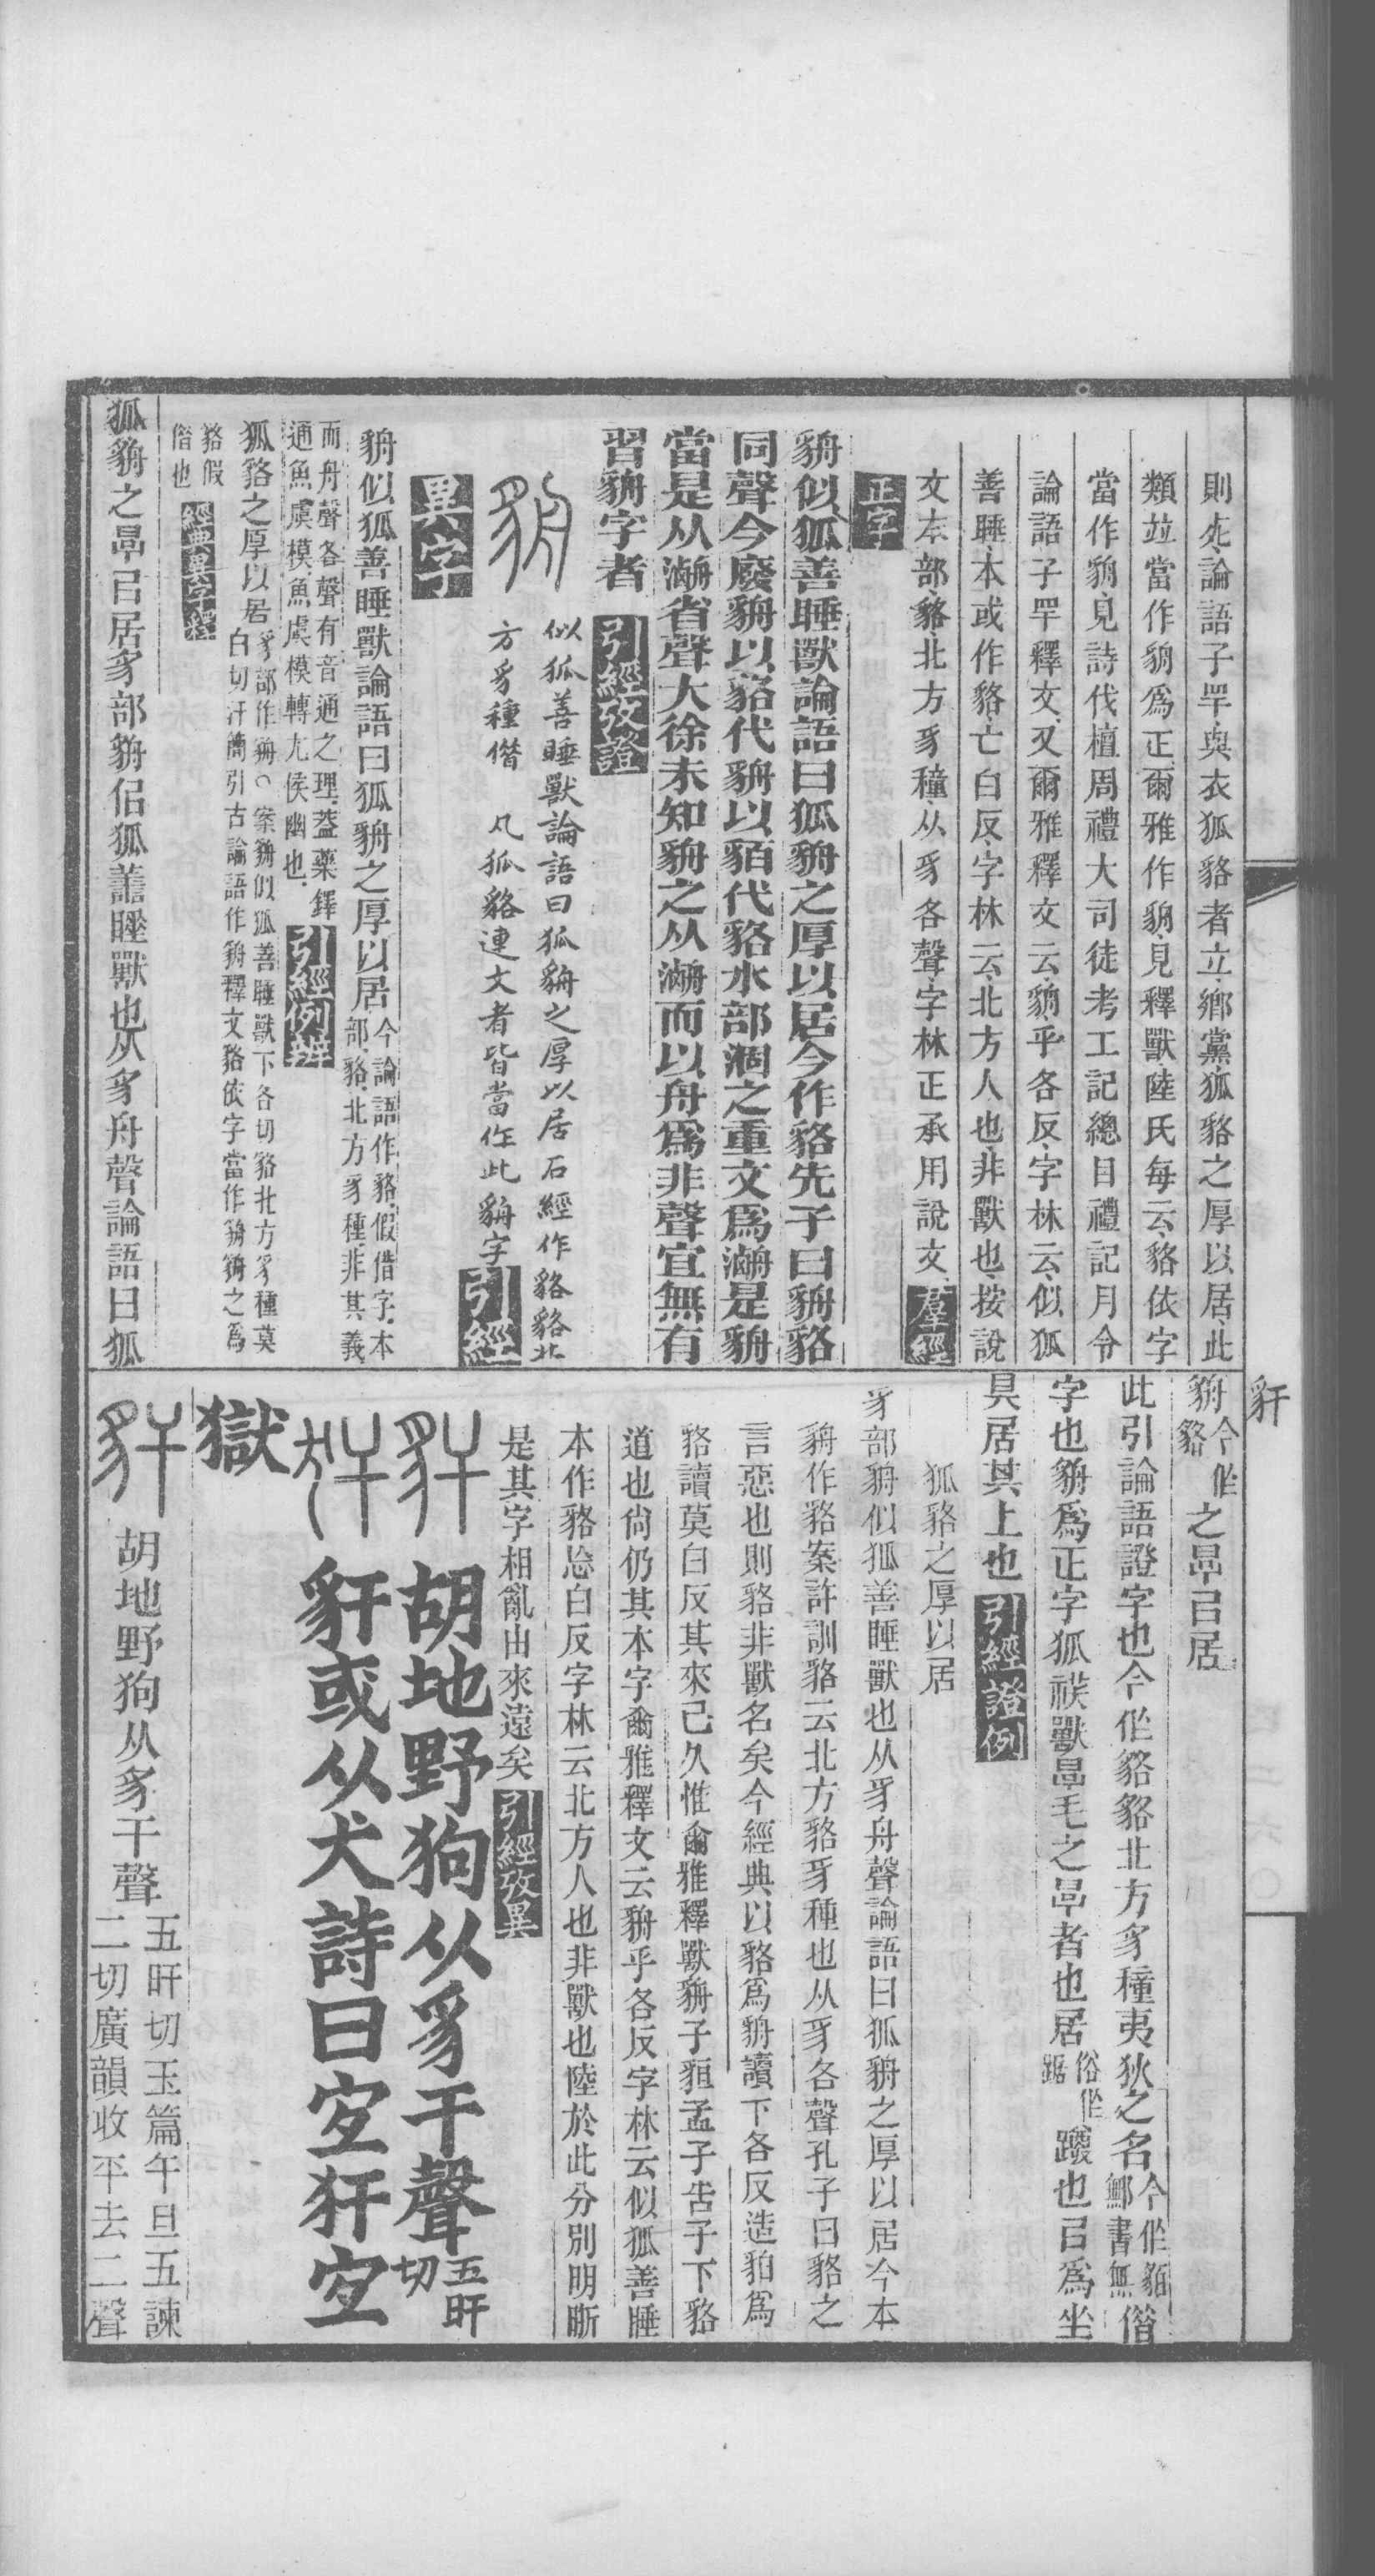 則死論語子罕與衣狐貉者立鄉黨狐貉之厚以居此
類竝當作貈爲正爾雅作貈見釋獸陸氏每云貉依字
當作貈見詩伐檀周禮大司徒考工記總目禮記月令
論語子罕釋文又爾雅釋文云貈乎各反字林云似狐
善睡本或作貉亡白反字林云北方人也非獸也按說
文本部貉北方豸穜从豸各聲字林正承用說文羣經
正字
貈似狐善睡獸論語曰狐貈之厚以居今作貉先子曰貈貉
同聲今廢貈以貉代貈以貊代貉水部涸之重文爲㵿是貈
當是从㵿省聲大徐未知貈之从㵿而以舟爲非聲宜無有
習貈字者引經攷證
貈
似狐善睡獸論語曰狐貈之厚以居石經作貉貉北
方豸種僭 凡狐貉連文者皆當作此貈字引經
異字
貈似狐善睡獸論語曰狐貈之厚以居今論語作貉假借字本
部貉北方豸種非其義
而舟聲各聲有音通之理葢藥鐸
通魚虞模魚虞模轉尤侯幽也引經例辨
狐貉之厚以居豸部作貈○案貈似狐善睡獸下各切貉北方豸種莫
白切汗簡引古論語作貈釋文貉依字當作貈貈之爲
貉假
僭也經典異字釋
狐貈之㫗㠯居豸部貈佀狐譱睡獸也从豸舟聲論語曰狐
貈今作
貉之㫗㠯居
此引論語證字也今作貉貉北方豸種夷狄之名今作貊
鄦書無僭
字也貈爲正字狐裘獸㫗毛之㫗者也居俗作
踞蹲也㠯爲坐
具居其上也引經證例
狐貉之厚以居
豸部貈似狐善睡獸也从豸舟聲論語曰狐貈之厚以居今本
貈作貉案許訓貉云北方貉豸種也从豸各聲孔子曰貉之
言惡也則貉非獸名矣今經典以貉爲貈讀下各反造貊爲
貉讀莫白反其來已久惟爾雅釋獸貈子貆孟子告子下貉
道也尙仍其本字爾雅釋文云貈乎各反字林云似狐善睡
本作貉亡白反字林云北方人也非獸也陸於此分別明晰
是其字相亂由來遠矣引經攷異
豻
胡地野狗从豸干聲五旰
切
犴
豻或从犬詩曰宐犴宐
獄
豻
胡地野狗从豸干聲五旰切玉篇午旦五諫
二切廣韻收平去二聲
豻